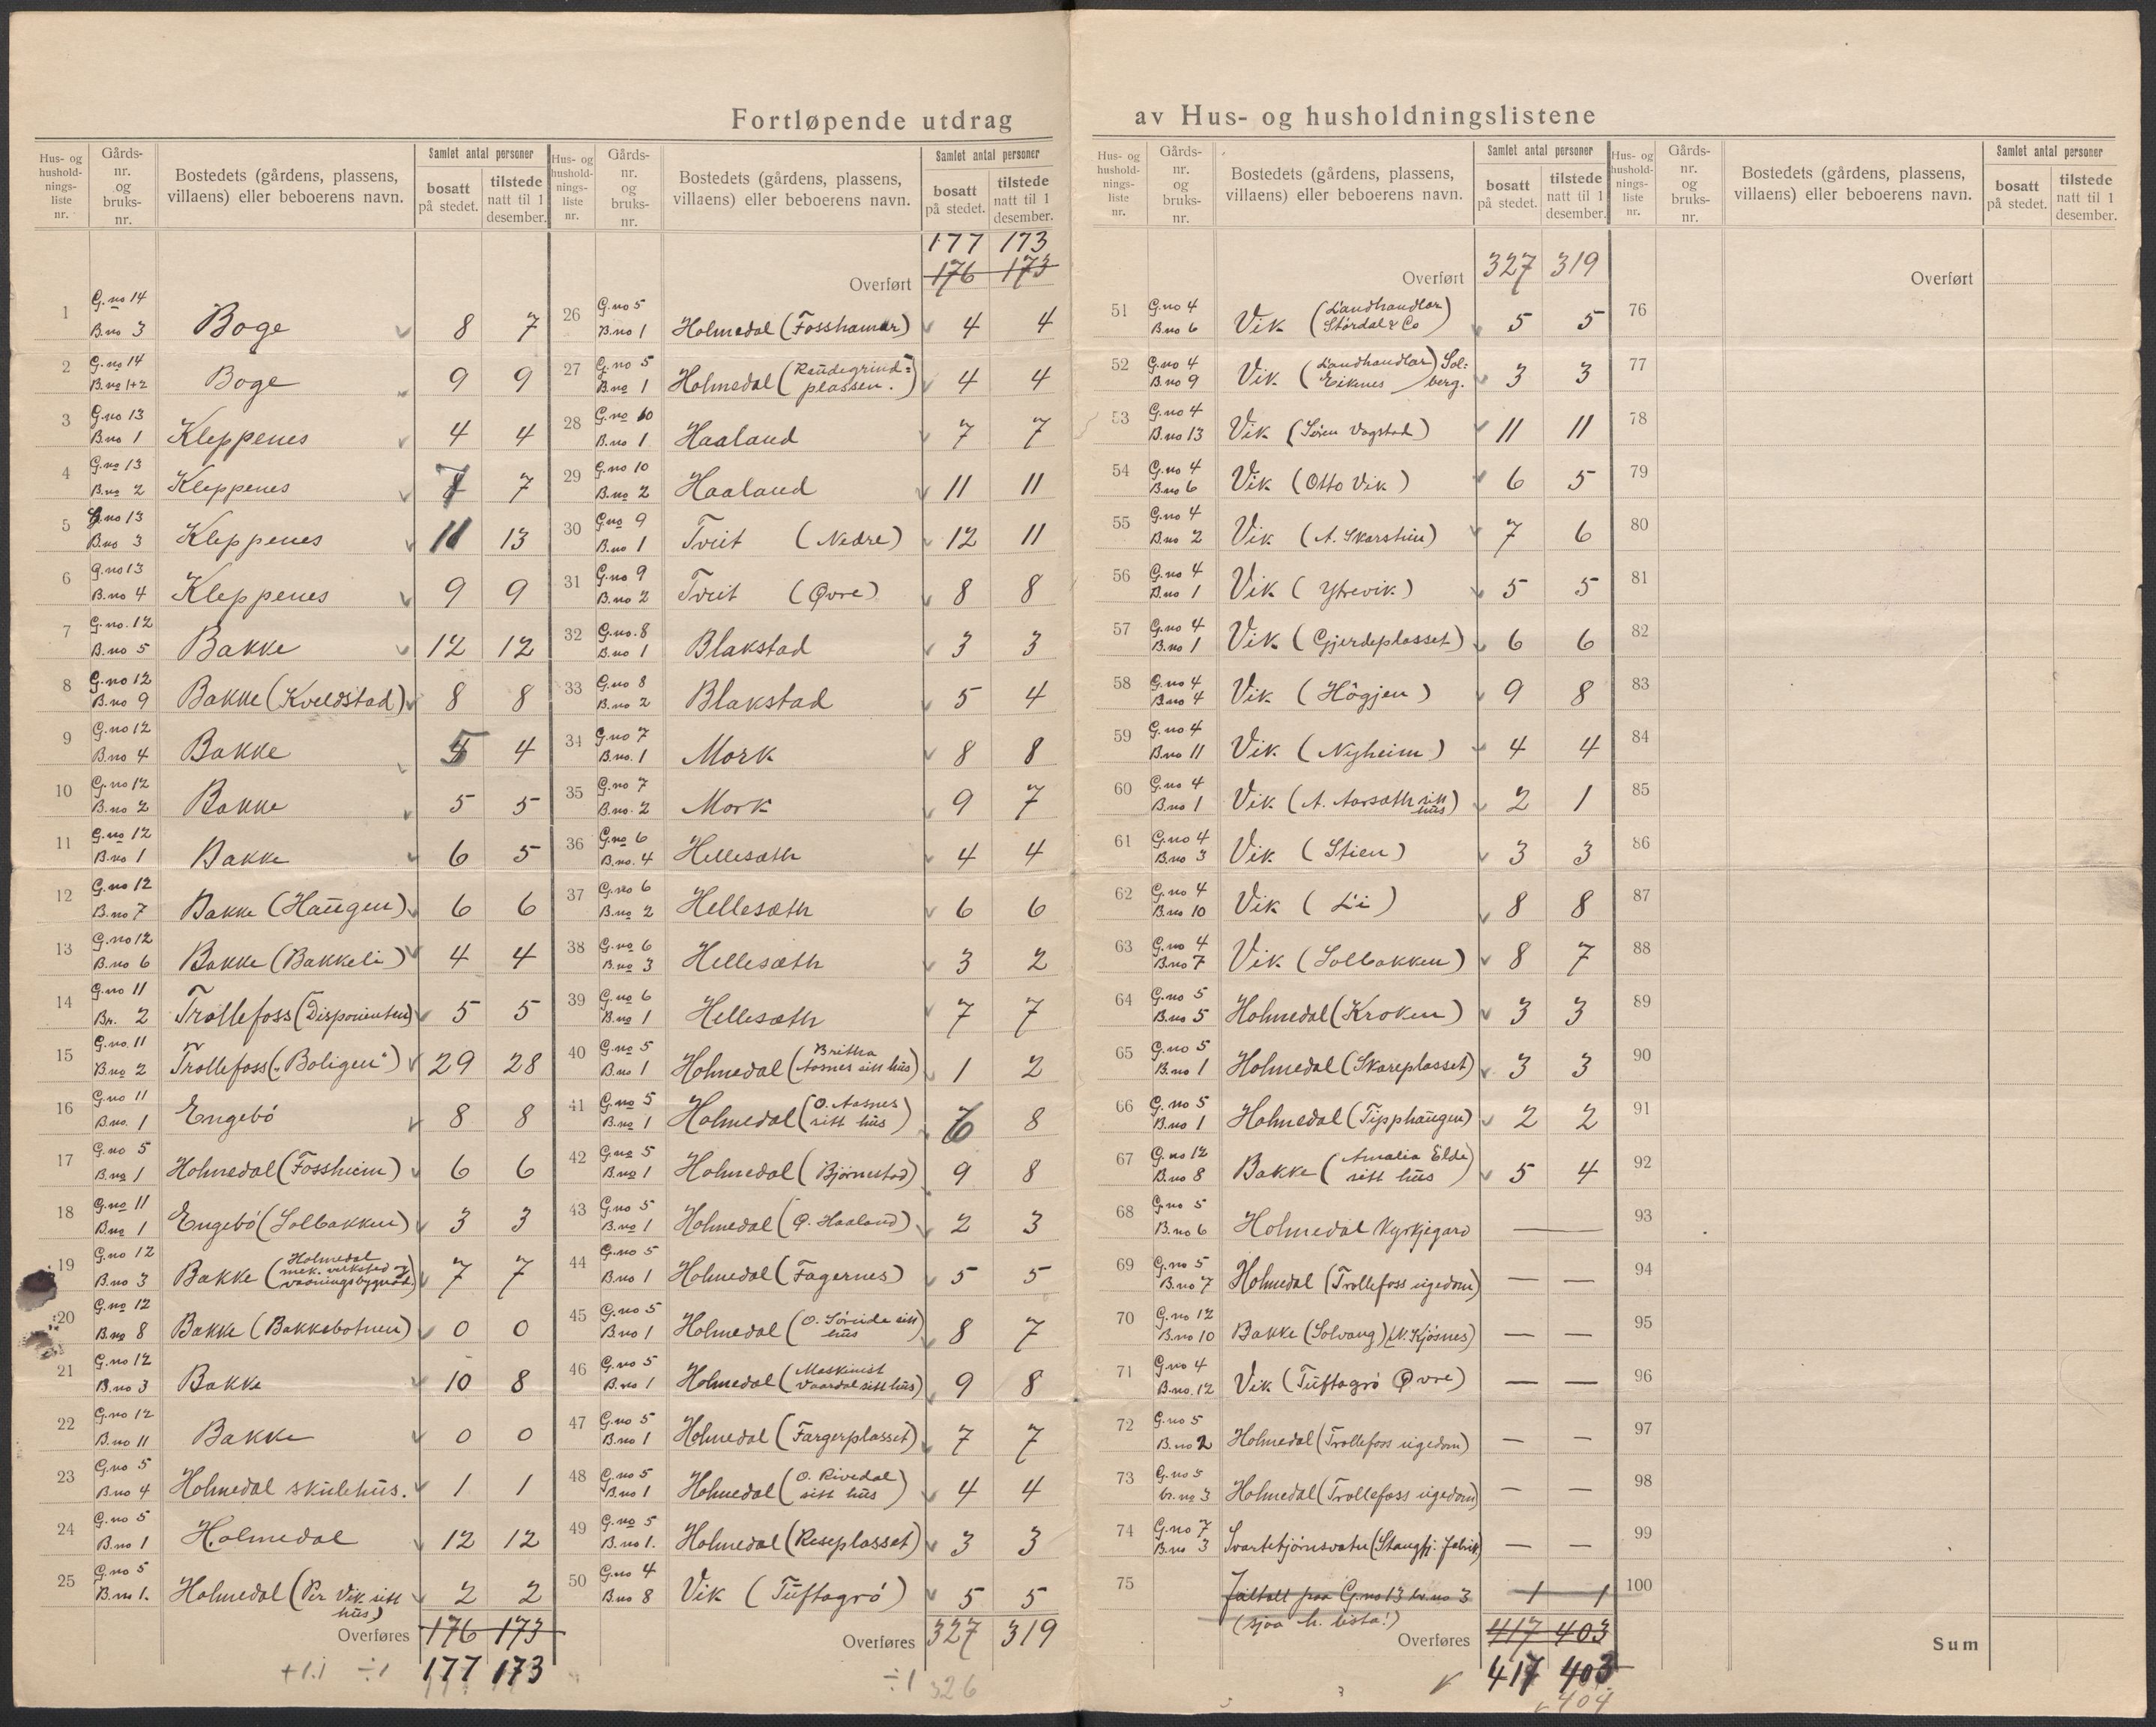 Fortløpende utdrag av Hus- og husholdningslistene
Hus- og hushold-nings-liste nr. Gårds-nr. og bruks-nr. Bostedets (gårdens, plassens, villaens) eller beboerens navn. Samlet antal personer bosatt på stedet. tilstede natt til 1 desember.
1 G.no 14 B.no 3 Boge 8 7
2 G.no 14 B.no 1+2 Boge 9 9
3 G.no 13 B.no 1 Kleppenes 4 4
4 G.no 13 B.no 2 Kleppenes 7 7
5 G.no 13 B.no 3 Kleppenes 11 13
6 G.no 13 B.no 4 Kleppenes 9 9
7 G.no. 12 B.no 5 Bakke 12 12
8 G.no 12 B.no 9 Bakke (Kveldstad) 8 8
9 G.no 12 B.no 4 Bakke 5 4
10 G.no 12 B.no 2 Bakke 5 5
11 G.no 12 B.no 1 Bakke 6 5
12 G.no 12 B.no 7 Bakke (Haugen) 6 6
13 G.no 12 B.no 6 Bakke (Bakkeli) 4 4
14 G.no 11 Br. 2 Trollefoss (Disponenten) 5 5
15 G.no. 11 B.no 2 Trollefoss („Boligen") 29 28
16 G.no 11 B.no. 1 Engebö 8 8
17 G.no 5 B.no 1 Holmedal (Fossheim) 6 6
18 G.no 11 B.no 1 Engebö (Solbakken) 3 3
19 G.no 12 B.no 3 Bakke (Holmedal mek. verksted og vaaningsbygnad) 7 7
20 G.no 12 B.no 8 Bakke (Bakkebotnen) 0 0
21 G.no 12 B.no 3 Bakke 10 8
22 G.no 12 B.no 11 Bakke 0 0
23 G.no 5 B.no 4 Holmedal skulehus. 1 1
24 G.no 5 B.no 1 Holmedal 12 12
25 G.no 5 B.no 1. Holmedal (Per Vik sitt hus) 2 2
Overføres 176 173
+1.i ÷1 177 173
Hus- og hushold-nings-liste nr. Gårds-nr. og bruks-nr. Bostedets (gårdens, plassens, villaens) eller beboerens navn. Samlet antal personer bosatt på stedet. tilstede natt til 1 desember.
177 173
Overført 176 173
26 G.no 5 B.no 1 Holmedal (Fosshamar) 4 4
27 G.no 5 B.no 1 Holmedal (Raudegrind= plassen.) 4 4
28 G.no 10 B.no 1 Haaland 7 7
29 G.no 10 B.no 2 Haaland 11 11
30 G.no 9 B.no 1 Tveit (Nedre) 12 11
31 G.no 9 B.no 2 Tveit (Øvre) 8 8
32 G.no. 8 B.no 1 Blakstad 3 3
33 G.no 8 B.no 2 Blakstad 5 4
34 G.no 7 B.no. 1 Mork 8 8
35 G.no 7 B.no. 2 Mork 9 7
36 G.no 6 B.no. 4 Hellesæth 4 4
37 G.no 6 B.no 2 Hellesæth 6 6
38 G.no 6 B.no 3 Hellesæth 3 2
39 G.no 6 B.no 1 Hellesæth 7 7
40 G.no 5 B.no 1 Holmedal (Britha Aasnes sitt hus) 1 2
41 G.no 5 B.no 1 Holmedal (O. Aasnes sitt hus) 8
42 G.no 5 B.no 1 Holmedal (Bjørnestad) 9 8
43 G.no 5 B.no 1 Holmedal (O. Haaland) 2 3
44 G.no 5 B.no 1 Holmedal (Fagernes) 5 5
45 G.no 5 B.no 1 Holmedal (O. Söreide sitt hus) 8 7
46 G.no 5 B.no 1 Holmedal (Maskinist Vaardal sitt hus) 9 8
47 G.no 5 B.no 1 Holmedal (Fargerplasset) 7 7
48 G.no 5 B.no 1 Holmedal (O. Rivedal sitt hus) 4 4
49 G.no 5 B.no 1. Holmedal (Reseplasset) 3 3
50 G.no 4 B.no 8 Vik (Tuftagrö) 5 5
Overføres 327 319
÷1 326
Hus- og hushold-nings-liste nr. Gårds-nr. og bruks-nr. Bostedets (gårdens, plassens, villaens) eller beboerens navn. Samlet antal personer bosatt på stedet. tilstede natt til 1 desember.
Overført 327 319
51 G.no 4 B.no 6 Vik (Landhandlar Stördal & Co) 5 5
52 G.no 4 B.no 9 Vik (Landhandlar Eiknes) Sol=berg. 3 3
53 G.no 4 B.no 13 Vik (Sören Vagstad) 11 11
54 G.no 4 B.no 6 Vik (Otto Vik) 6 5
55 G.no 4 B.no 2 Vik (A. Skarstein) 7 6
56 G.no 4 B.no 1 Vik (Ytrevik) 5 5
57 G.no 4 B.no 1 Vik (Gjerdeplasset) 6 6
58 G.no 4 B.no 4 Vik (Högjen) 9 8
59 G.no 4 B.no 11 Vik (Nyheim) 4 4
60 G.no 4 B.no 1 Vik (A. Aarsæth sitt hus) 2 1
61 G.no 4 B.no 3 Vik (Stien) 3 3
62 G.no 4 B.no 10 Vik (Li) 8 8
63 G.no 4 B.no 7 Vik (Solbakken) 8 7
64 G.no 5 B.no 5 Holmedal (Kroken) 3 3
65 G.no 5 B.no 1 Holmedal (Skareplasset) 3 3
66 G.no 5 B.no 1 Holmedal (Tipphaugen) 2 2
67 G.no 12 B.no 8 Bakke (Amalia Elde sitt hus) 5 4
68 G.no 5 B.no 6 Holmedal Kyrkjegard —
69 G.no 5 B.no 7 Holmedal (Trollefoss eigedom) — —
70 G.no 12 B.no 10 Bakke (Solvang) (N. Kjösnes) — —
71 G.no 4 B.no. 12 Vik (Tuftagrö Øvre) — —
72 G.no 5 B.no 2 Holmedal (Trollefoss eigedom) — —
73 G.no 5 br. no 3 Holmedal (Trollefoss eigedom) — —
74 G.no 7 B.no 3 Svartetjörnsvatn (Stangfj. fabrik) — —
75 fältalt paa G.no 13 br.no 3 1 1
(sjaa h. lista!)
Overføres 417 403
417 403
404
Hus- og hushold-nings-liste nr. Gårds-nr. og bruks-nr. Bostedets (gårdens, plassens, villaens) eller beboerens navn. Samlet antal personer bosatt på stedet. tilstede natt til 1 desember.
Overført
76
77
78
79
80
81
82
83
84
85
86
87
88
89
90
91
92
93
94
95
96
97
98
99
100
Sum